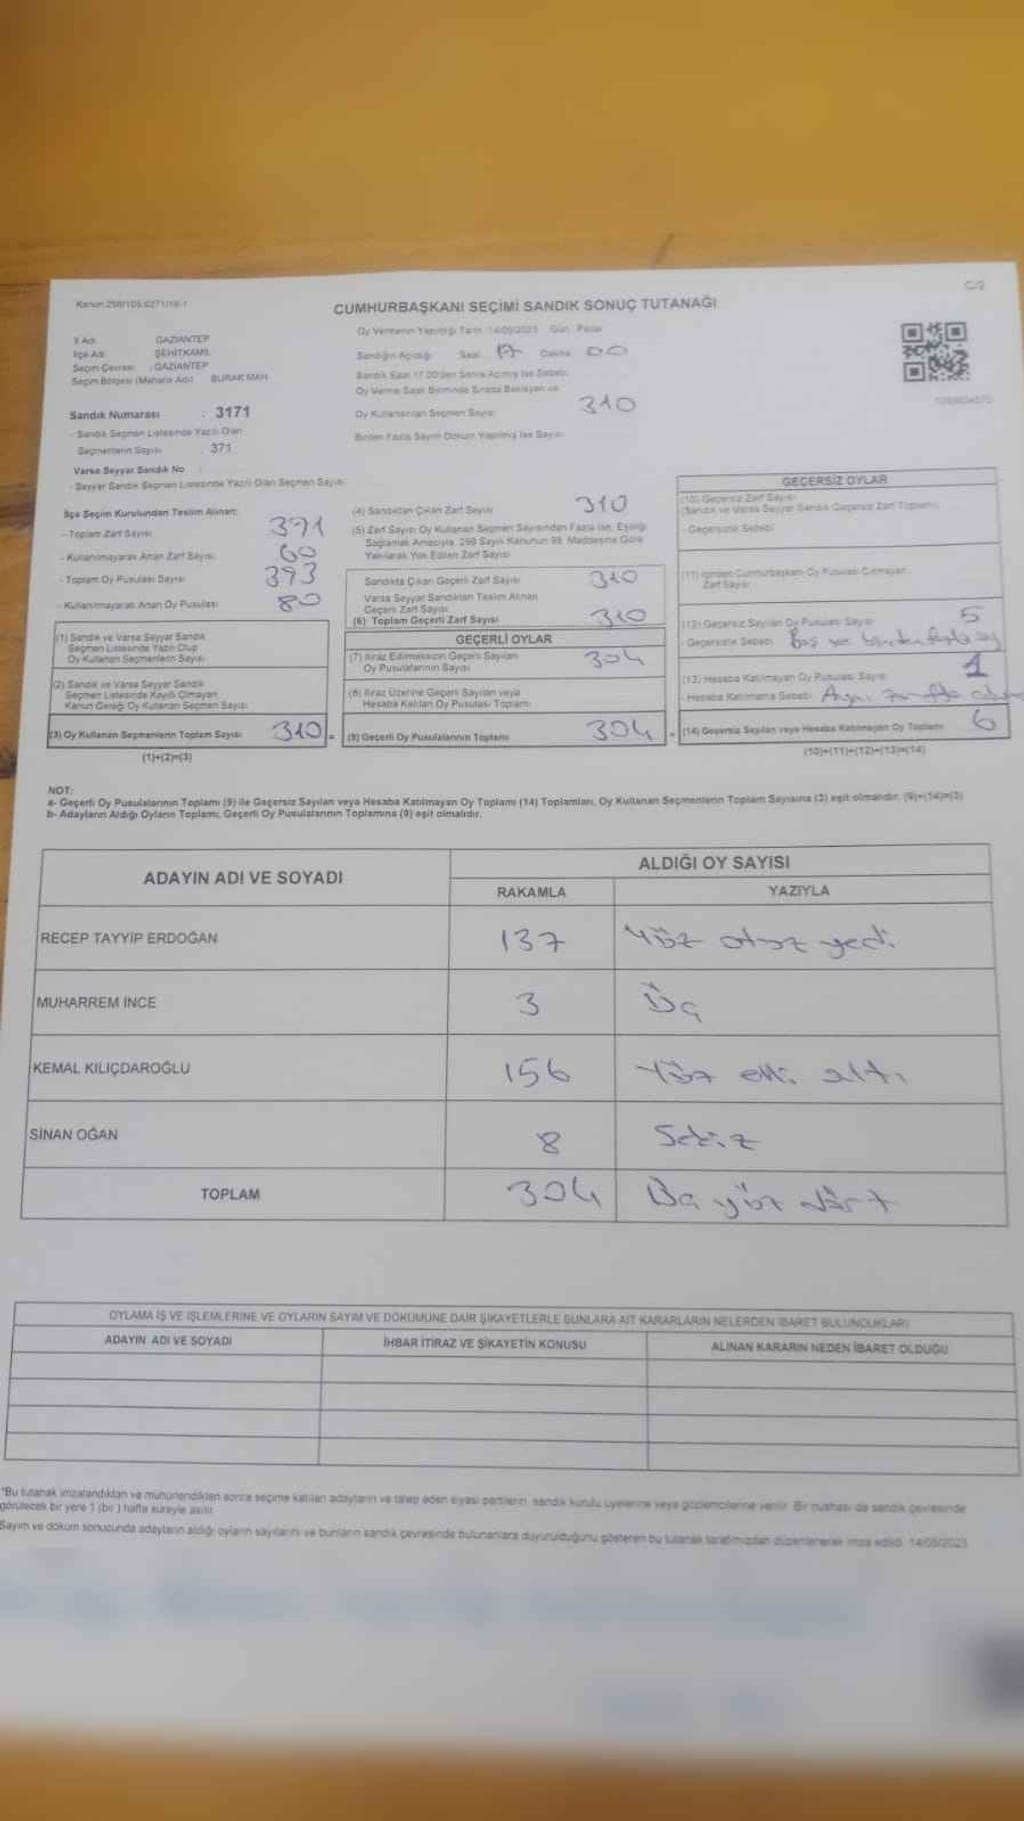 C/2
CUMHURBAŞKANI SEÇİMİ SANDIK SONUÇ TUTANAĞI
Oy Vermenin Yapıldığı Tarih 14/05/2023 Gün Pazar
İl Adı GAZİANTEP
İlçe Adı ŞEHİTKAMİL
Seçim Çevresi : GAZİANTEP
Seçim Bölgesi (Mahalle Adı) BURAK MAH.
Sandığın Açıldığı Saat 17 Dakika 00
Sandık Saat 17.00'den Sonra Açılmış İse Sebebi
Oy Verme Saati Bitiminde Sırada Bekleyen ve
Oy Kullandırılan Seçmen Sayısı 310
Birden Fazla Sayım Döküm Yapılmış İse Sayısı
Sandık Numarası : 3171
- Sandık Seçmen Listesinde Yazılı Olan
Seçmenlerin Sayısı : 371
Varsa Seyyar Sandık No :
- Seyyar Sandık Seçmen Listesinde Yazılı Olan Seçmen Sayısı
İlçe Seçim Kurulundan Teslim Alınan:
- Toplam Zarf Sayısı 371
- Kullanılmayarak Artan Zarf Sayısı 60
- Toplam Oy Pusulası Sayısı 393
- Kullanılmayarak Artan Oy Pusulası 80
(1) Sandık ve Varsa Seyyar Sandık
Seçmen Listesinde Yazılı Olup
Oy Kullanan Seçmenlerin Sayısı
(2) Sandık ve Varsa Seyyar Sandık
Seçmen Listesinde Kayıtlı Olmayan
Kanun Gereği Oy Kullanan Seçmen Sayısı
(3) Oy Kullanan Seçmenlerin Toplam Sayısı 310 =
(1)+(2)=(3)
(4) Sandıktan Çıkan Zarf Sayısı 310
(5) Zarf Sayısı Oy Kullanan Seçmen Sayısından Fazla İse, Eşitliği
Sağlamak Amacıyla, 298 Sayılı Kanunun 98. Maddesine Göre
Yakılarak Yok Edilen Zarf Sayısı
Sandıkta Çıkan Geçerli Zarf Sayısı 310
Varsa Seyyar Sandıktan Teslim Alınan
Geçerli Zarf Sayısı
(6) Toplam Geçerli Zarf Sayısı 310
GEÇERLİ OYLAR
(7) İtiraz Edilmeksizin Geçerli Sayılan
Oy Pusulalarının Sayısı 304
(8) İtiraz Üzerine Geçerli Sayılan veya
Hesaba Katılan Oy Pusulası Toplamı
(9) Geçerli Oy Pusulalarının Toplamı 304
GEÇERSİZ OYLAR
(10) Geçersiz Zarf Sayısı
(Sandık ve Varsa Seyyar Sandık Geçersiz Zarf Toplamı)
- Geçersizlik Sebebi
(11) İçinden Cumhurbaşkanı Oy Pusulası Çıkmayan
Zarf Sayısı
(12) Geçersiz Sayılan Oy Pusulası Sayısı 5
- Geçersizlik Sebebi Boş ve birden fazla
(13) Hesaba Katılmayan Oy Pusulası Sayısı 1
- Hesaba Katılmama Sebebi Aynı zarfta
(14) Geçersiz Sayılan veya Hesaba Katılmayan Oy Toplamı 6
(10)+(11)+(12)+(13)=(14)
NOT:
a- Geçerli Oy Pusulalarının Toplamı (9) ile Geçersiz Sayılan veya Hesaba Katılmayan Oy Toplamı (14) Toplamları, Oy Kullanan Seçmenlerin Toplam Sayısına (3) eşit olmalıdır. (9)+(14)=(3)
b- Adayların Aldığı Oyların Toplamı, Geçerli Oy Pusulalarının Toplamına (9) eşit olmalıdır.
ADAYIN ADI VE SOYADI ALDIĞI OY SAYISI
RAKAMLA YAZIYLA
RECEP TAYYİP ERDOĞAN 137 Yüz otuz yedi
MUHARREM İNCE 3 Üç
KEMAL KILIÇDAROĞLU 156 Yüz elli altı
SİNAN OĞAN 8 Sekiz
TOPLAM 304 Üç yüz dört
OYLAMA İŞ VE İŞLEMLERİNE VE OYLARIN SAYIM VE DÖKÜMÜNE DAİR ŞİKAYETLERLE BUNLARA AİT KARARLARIN NELERDEN İBARET BULUNDUKLARI
ADAYIN ADI VE SOYADI İHBAR İTİRAZ VE ŞİKAYETİN KONUSU ALINAN KARARIN NEDEN İBARET OLDUĞU
*Bu tutanak imzalandıktan ve mühürlendikten sonra seçime katılan adayların ve talep eden siyasi partilerin sandık kurulu üyelerine veya gözlemcilerine verilir. Bir nüshası da sandık çevresinde
görülecek bir yere 1 (bir) hafta süreyle asılır.
Sayım ve döküm sonucunda adayların aldığı oyların sayılarını ve bunların sandık çevresinde bulunanlara duyurulduğunu gösteren bu tutanak tarafımızdan düzenlenerek imza edildi. 14/05/2023